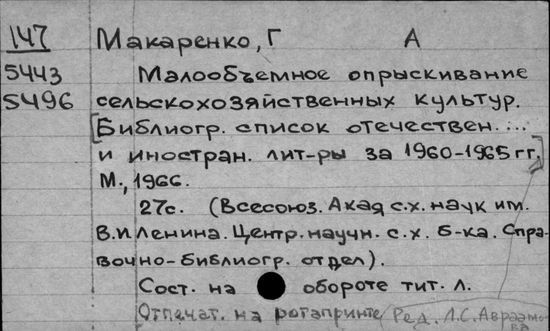 147 Макаренко, Г А
5443 Малообъемное опрыскивание
5496 сельскохозяйственных культур.
[Библиогр. список отечествен....
и иностран. лит-ры за 1960-1965 гг.]
М., 1966.
27с. (Всесоюз. Акад с.х. наук им.
В.И Ленина. Центр. научн. с.х. б-ка. Спра-
вочно-библиогр. отдел).
Сост. на обороте тит. л.
Отпечат. на ротапринте Ред. Л.С. Авраамо-
ва